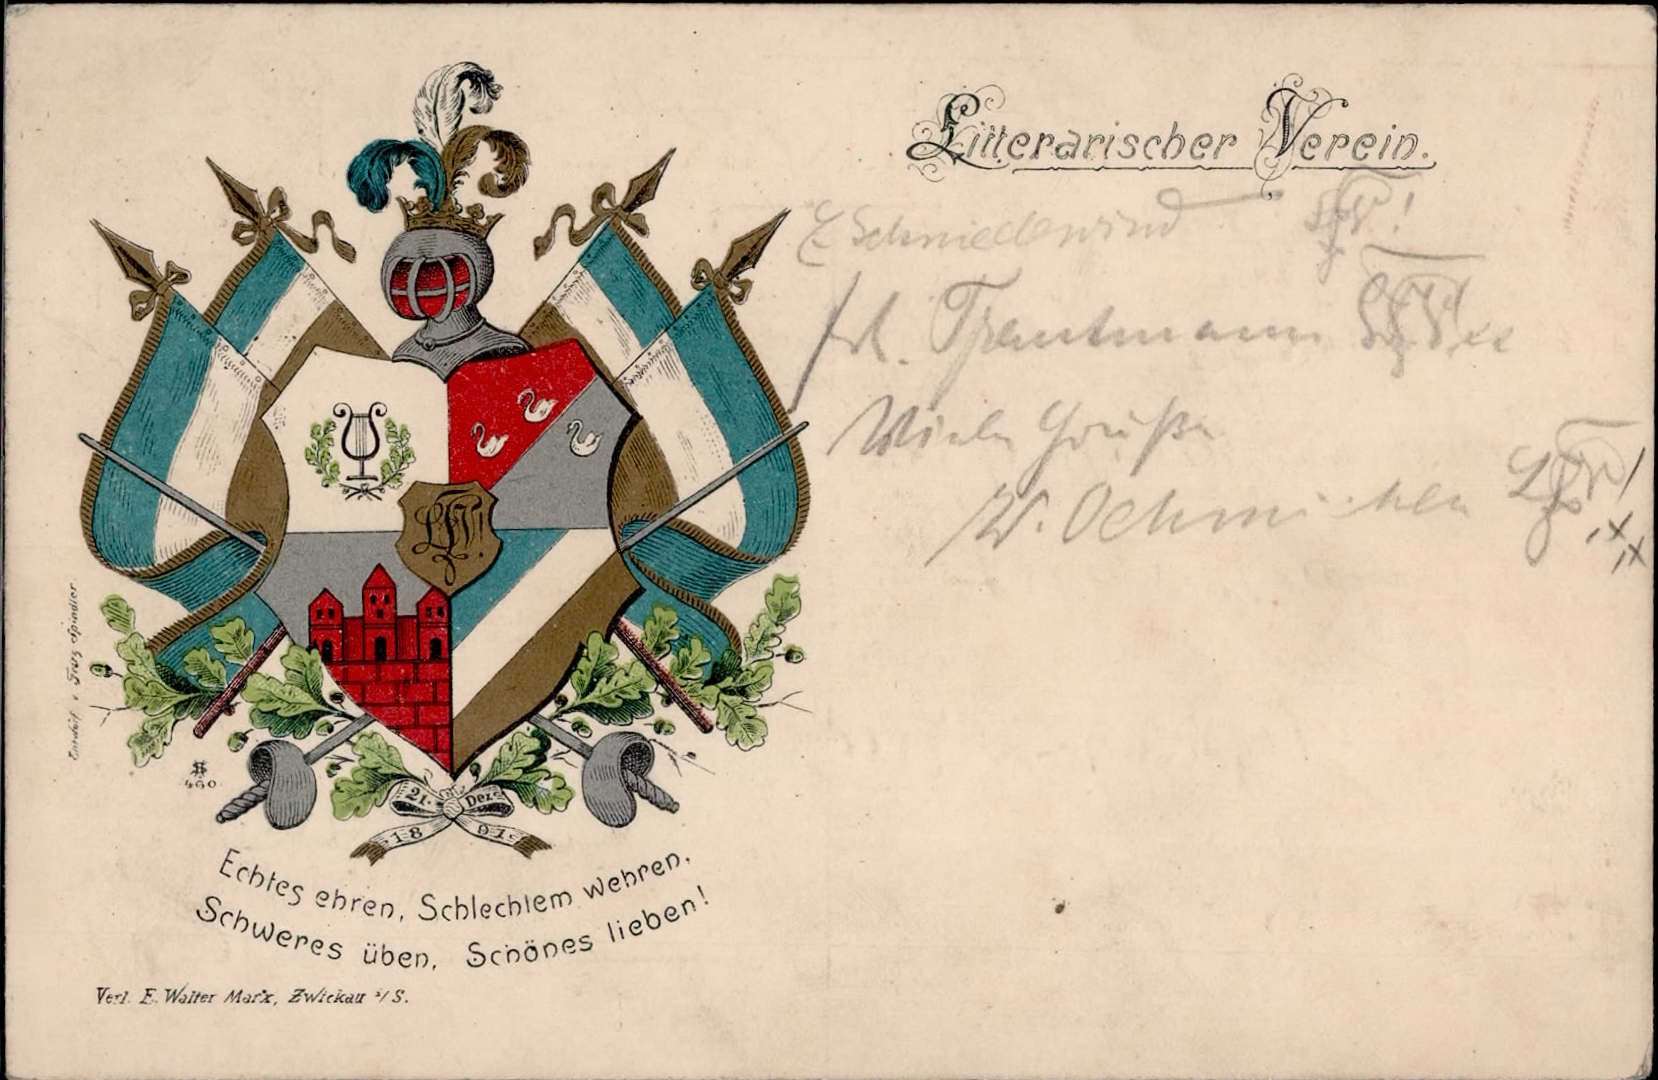 Litterarischer Verein.
E Schmiedewind
Trautmann
Viele Grüße
W. Oehmichen
21. Dez.
1891.
Echtes ehren, Schlechtem wehren,
Schweres üben, Schönes lieben!
Verl. E. Walter Marx, Zwickau i/S.
Entwurf v. Franz Spindler
460.